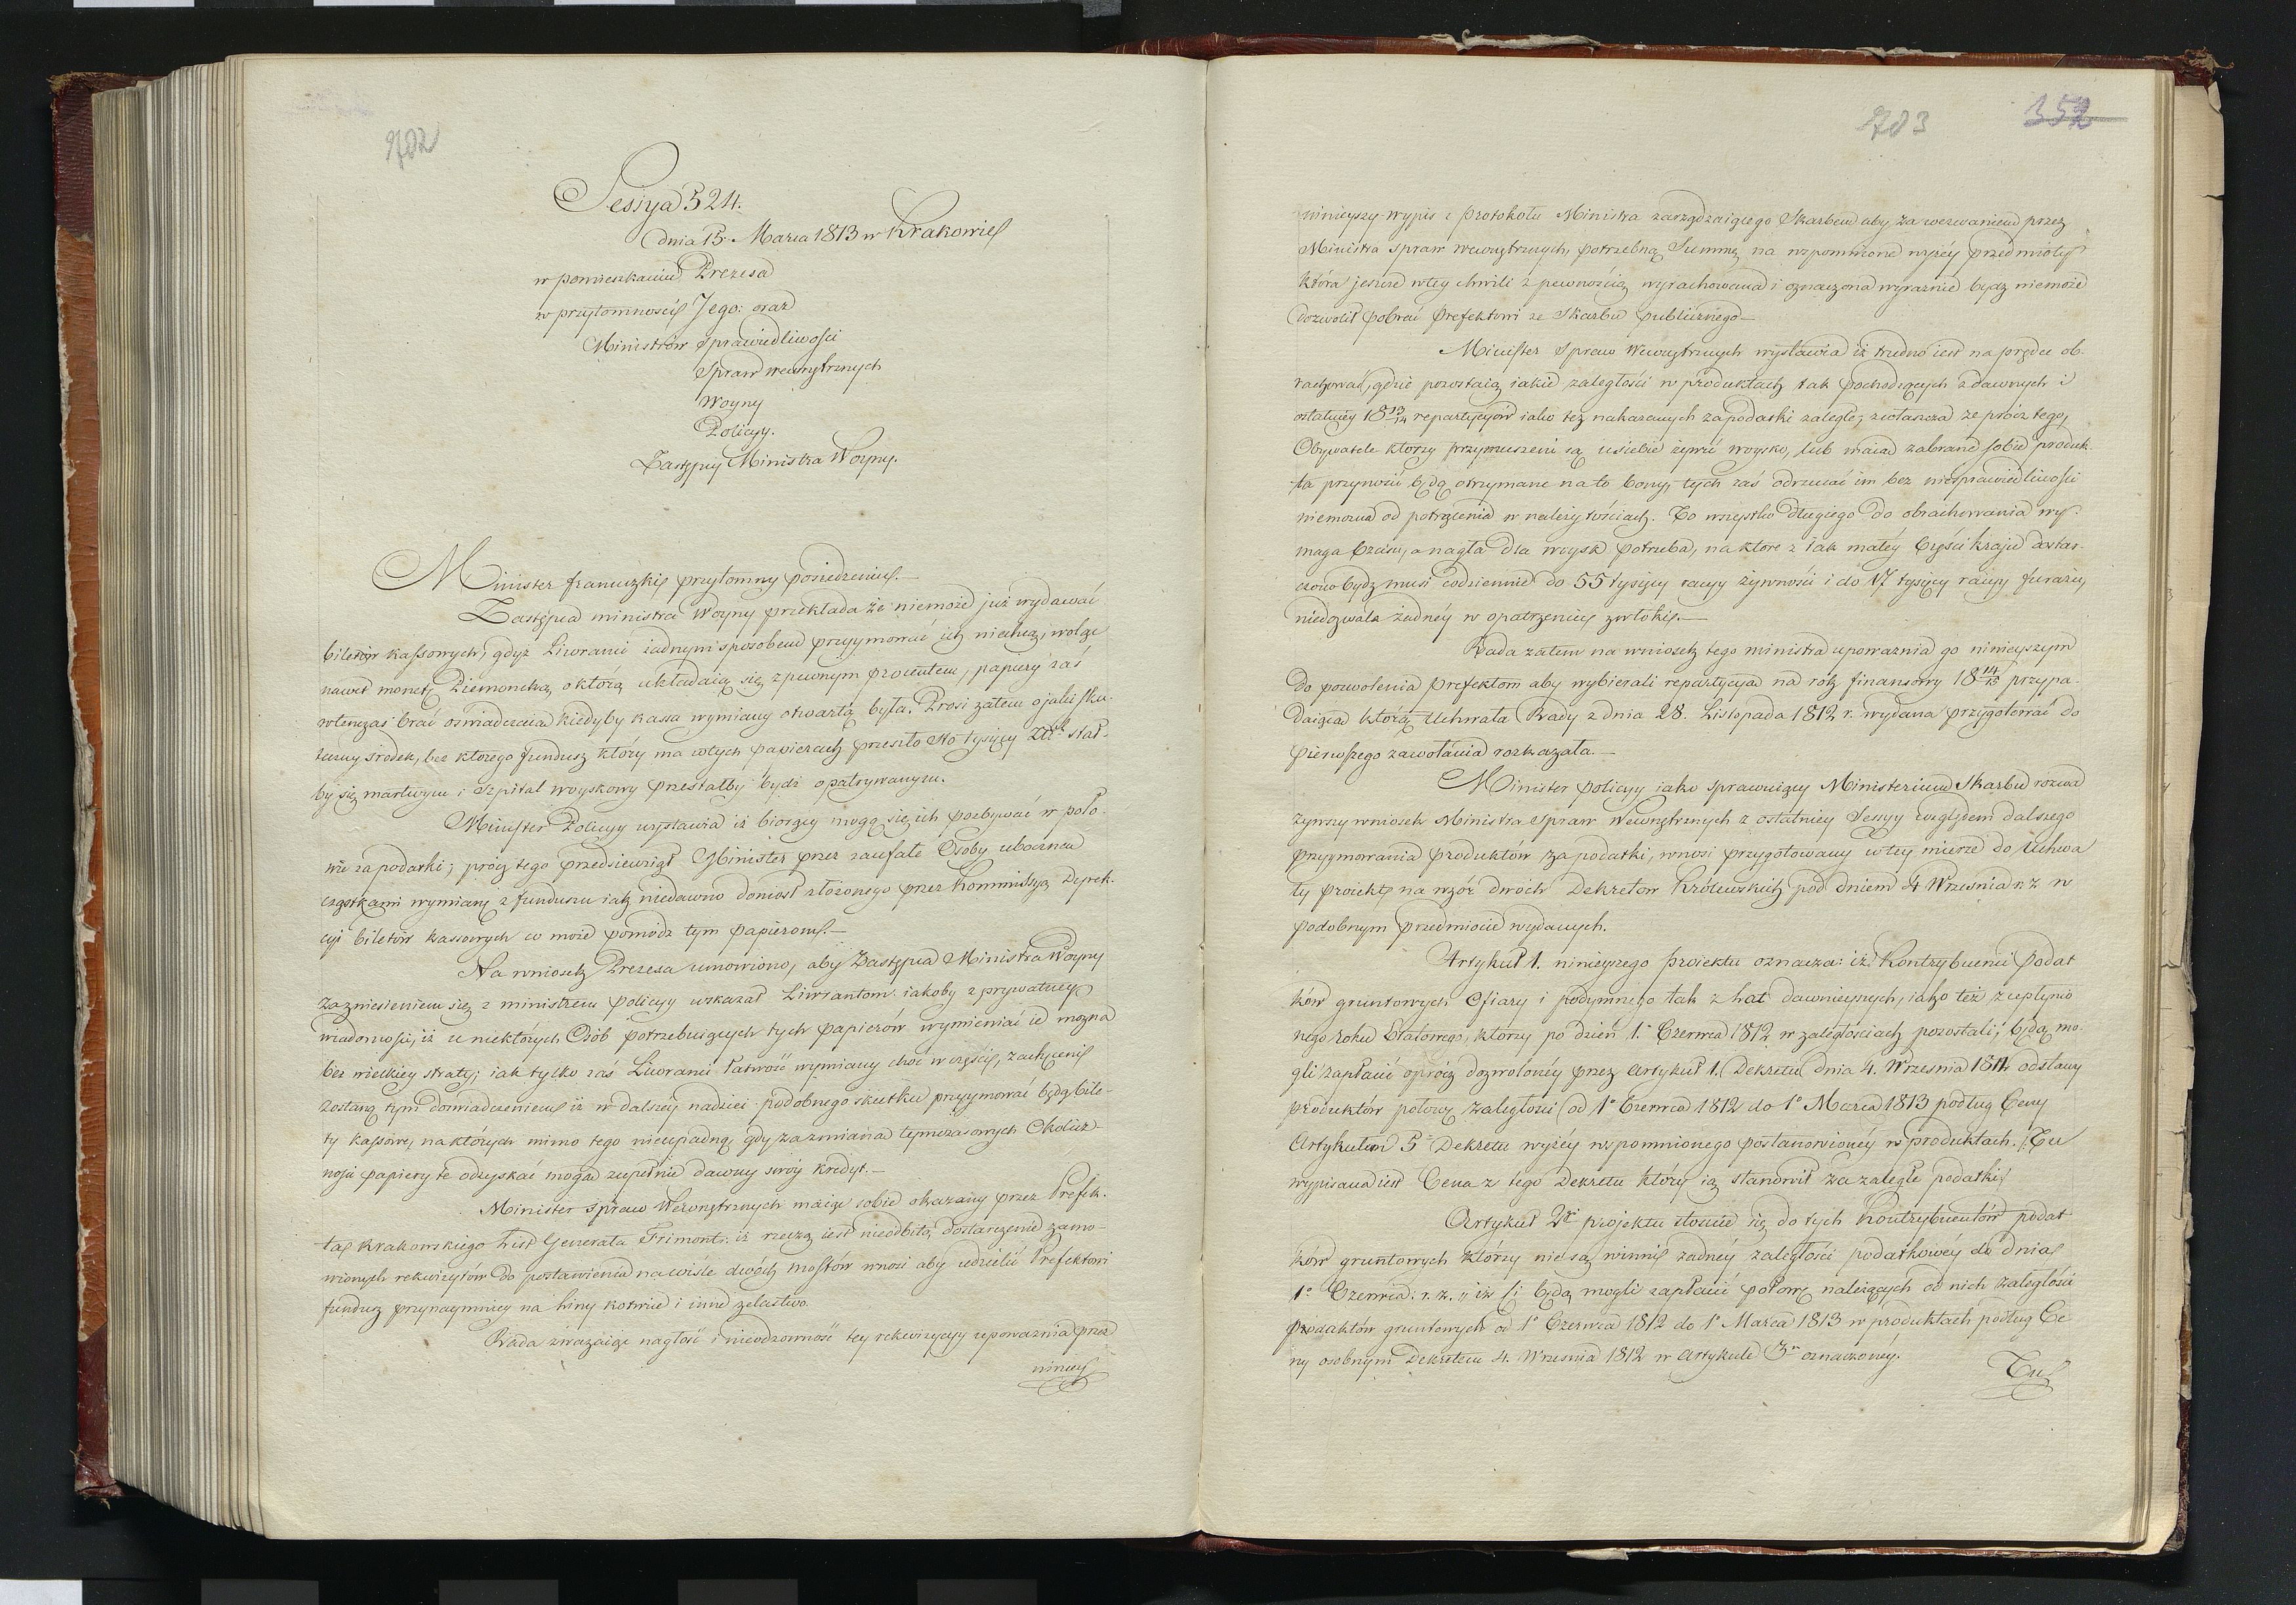 702
Sessya 524.
dnia 15. Marca 1813 w Krakowie
w pomieszkaniu Prezesa
w przytomności Jego: oraz
Ministrów Sprawiedliwości
Spraw wewnętrznych
Woyny
Policyi.
Zastępcy Ministra Woyny.
Minister francuzki przytomny posiedzeniu.—
Zastępca ministra Woyny przekłada że niemoże już wydawać
biletów kassowych, gdyż Liweranci żadnym sposobem przyymować ich niechcą, wolą
nawet monetę Piemoncką o którą układaią się z pewnym procentem, papiery zaś
wtenczas brać oświadczaią kiedyby kassa wymiany otwartą była. Prosi zatem o jaki sku-
teczny środek, bez którego fundusz który ma w tych papierach przeszło sto tysięcy Złt stał-
by się martwym i Szpital woyskowy przestałby bydź opatrywanym.
Minister Policyi wystawia iż biorący mogą się ich pozbywać w poło-
wie za podatki; prócz tego przedsiewziął Minister przez zaufałe Osoby uboczną
cząstkami wymianę z funduszu iak niedawno doniosł złożonego przez Kommissyą Deprek-
cyi biletów kassowych co może pomódz tym papierom.—
Na wniosek Prezesa umówiono, aby Zastępca Ministra Woyny
za zniesieniem się z ministrem policyi wskazał Liwrantom iakoby z prywatney
wiadomości, iż u niektórych Osób potrzebuiących tych papierów wymieniać ie można
bez wielkiey straty; iak tylko zaś Liweranci łatwość wymiany choć w części, zachęceni
zostaną tym doświadczeniem iż w dalszey nadziei podobnego skutku przyymować będą bile-
ty kassowe, na których mimo tego nieupadną, gdy za zmianą teymczasowych Okolicz-
ności papiery te odzyskać mogą zupełnie dawny swóy kredyt.—
Minister spraw Wewnętrznych maiąc sobie okazany przez Prefek-
ta Krakowskiego List Generała Frimont: iż rzeczą iest nieodbitą dostarczenie zamó-
wionych rekwizytów do postawienia na wiśle dwóch mostów wnosi aby udzielić Prefektowi
fundusz przynaymniey na liny kotwice i inne żelastwo.
Rada zważaiąc nagłość i nieodzowność tey rekwizycyi upoważnia przez
niniey
703
352
ninieyszy wypis z protokołu Ministra zarządzaiącego Skarbem aby za wezwaniem przez
Ministra spraw wewnętrznych, potrzebną Summę na wspomnione wyżey przedmioty
która jeszcze w tey chwili z pewnością wyrachowana i oznaczona wyraźnie bydź niemoże
dozwolił pobrać Prefektowi ze Skarbu publicznego—
Minister Spraw Wewnętrznych wystawia iż trudno iest na prędce ob-
rachować, gdzie pozostaią iakie zaległości w produktach tak pochodzących z dawnych i
ostatniey 18 13/14 repartycyów iako też nakazanych za podatki zaległe; zwłaszcza że prócz tego,
Obywatele którzy przymuszeni są u siebie żywić woysko, lub maią zabrane sobie produk-
ta przynosić będą otrzymane na to bony, tych zaś odrzucać im bez niesprawiedliwości
niemożna od potrącenia w należytościach. To wszystko długiego do obrachowania wy-
maga Czasu, a nagła dla woysk potrzeba, na które z tak małey Części kraju dostar-
czono bydź musi codziennie do 55 tysięcy racyy żywności i do 17 tysięcy racyy furażu,
niedozwala żadney w opatrzeniu zwłoki.—
Rada zatem na wniosek tego ministra upoważnia go ninieyszym
do pozwolenia Prefektom aby wybierali repartycyą na rok finansowy 18 14/15 przypa-
daiącą którą Uchwała Rady z dnia 28. Listopada 1812 r. wydana przygotować do
pierwszego zawołania rozkazała.—
Minister policyi iako sprawuiący Ministerium Skarbu rozwa-
żywszy wniosek Ministra Spraw Wewnętrznych z ostatniey Sessyi względem dalszego
przyymowania produktów za podatki, wnosi przygotowany w tey mierze do Uchwa-
ły proiekt na wzór dwóch Dekretów Królewskich pod dniem 4 Września r. z. w
podobnym przedmiocie wydanych.
Artykuł 1. ninieyszego proiektu oznacza: iż Kontrybuenci podat-
ków gruntowych Ofiary i podymnego tak z lat dawnieyszych, iako też z upłynio-
nego roku Etatowego, którzy po dzień 1. Czerwca 1812 w zaległościach pozostali; będą mo-
gli zapłacić oprócz dozwolóney przez artykuł 1. Dekretu dnia 4. Września 1812 odstawy
produktów połowę zaległości od 1° Czerwca 1812 do 1° Marca 1813 podług Ceny
Artykułem 5 Dekretu wyżey wspomnionego postanowioney w produktach. /: Tu
wypisana iest Cena z tego Dekretu który ią stanowił za zaległe podatki/
Artykuł 2gi projektu stosuie się do tych Kontrybuentów podat-
ków gruntowych którzy nie są winni żadney zaległości podatkowey do dnia
1° Czerwca: r. z. iż ci będą mogli zapłacić połowę należących od nich zaległości
podatków gruntowych od 1° Czerwca 1812 do 1° Marca 1813 w produktach podług Ce-
ny osobnym Dekretem 4. Września 1812 w artykule 3m oznaczoney.
Tu